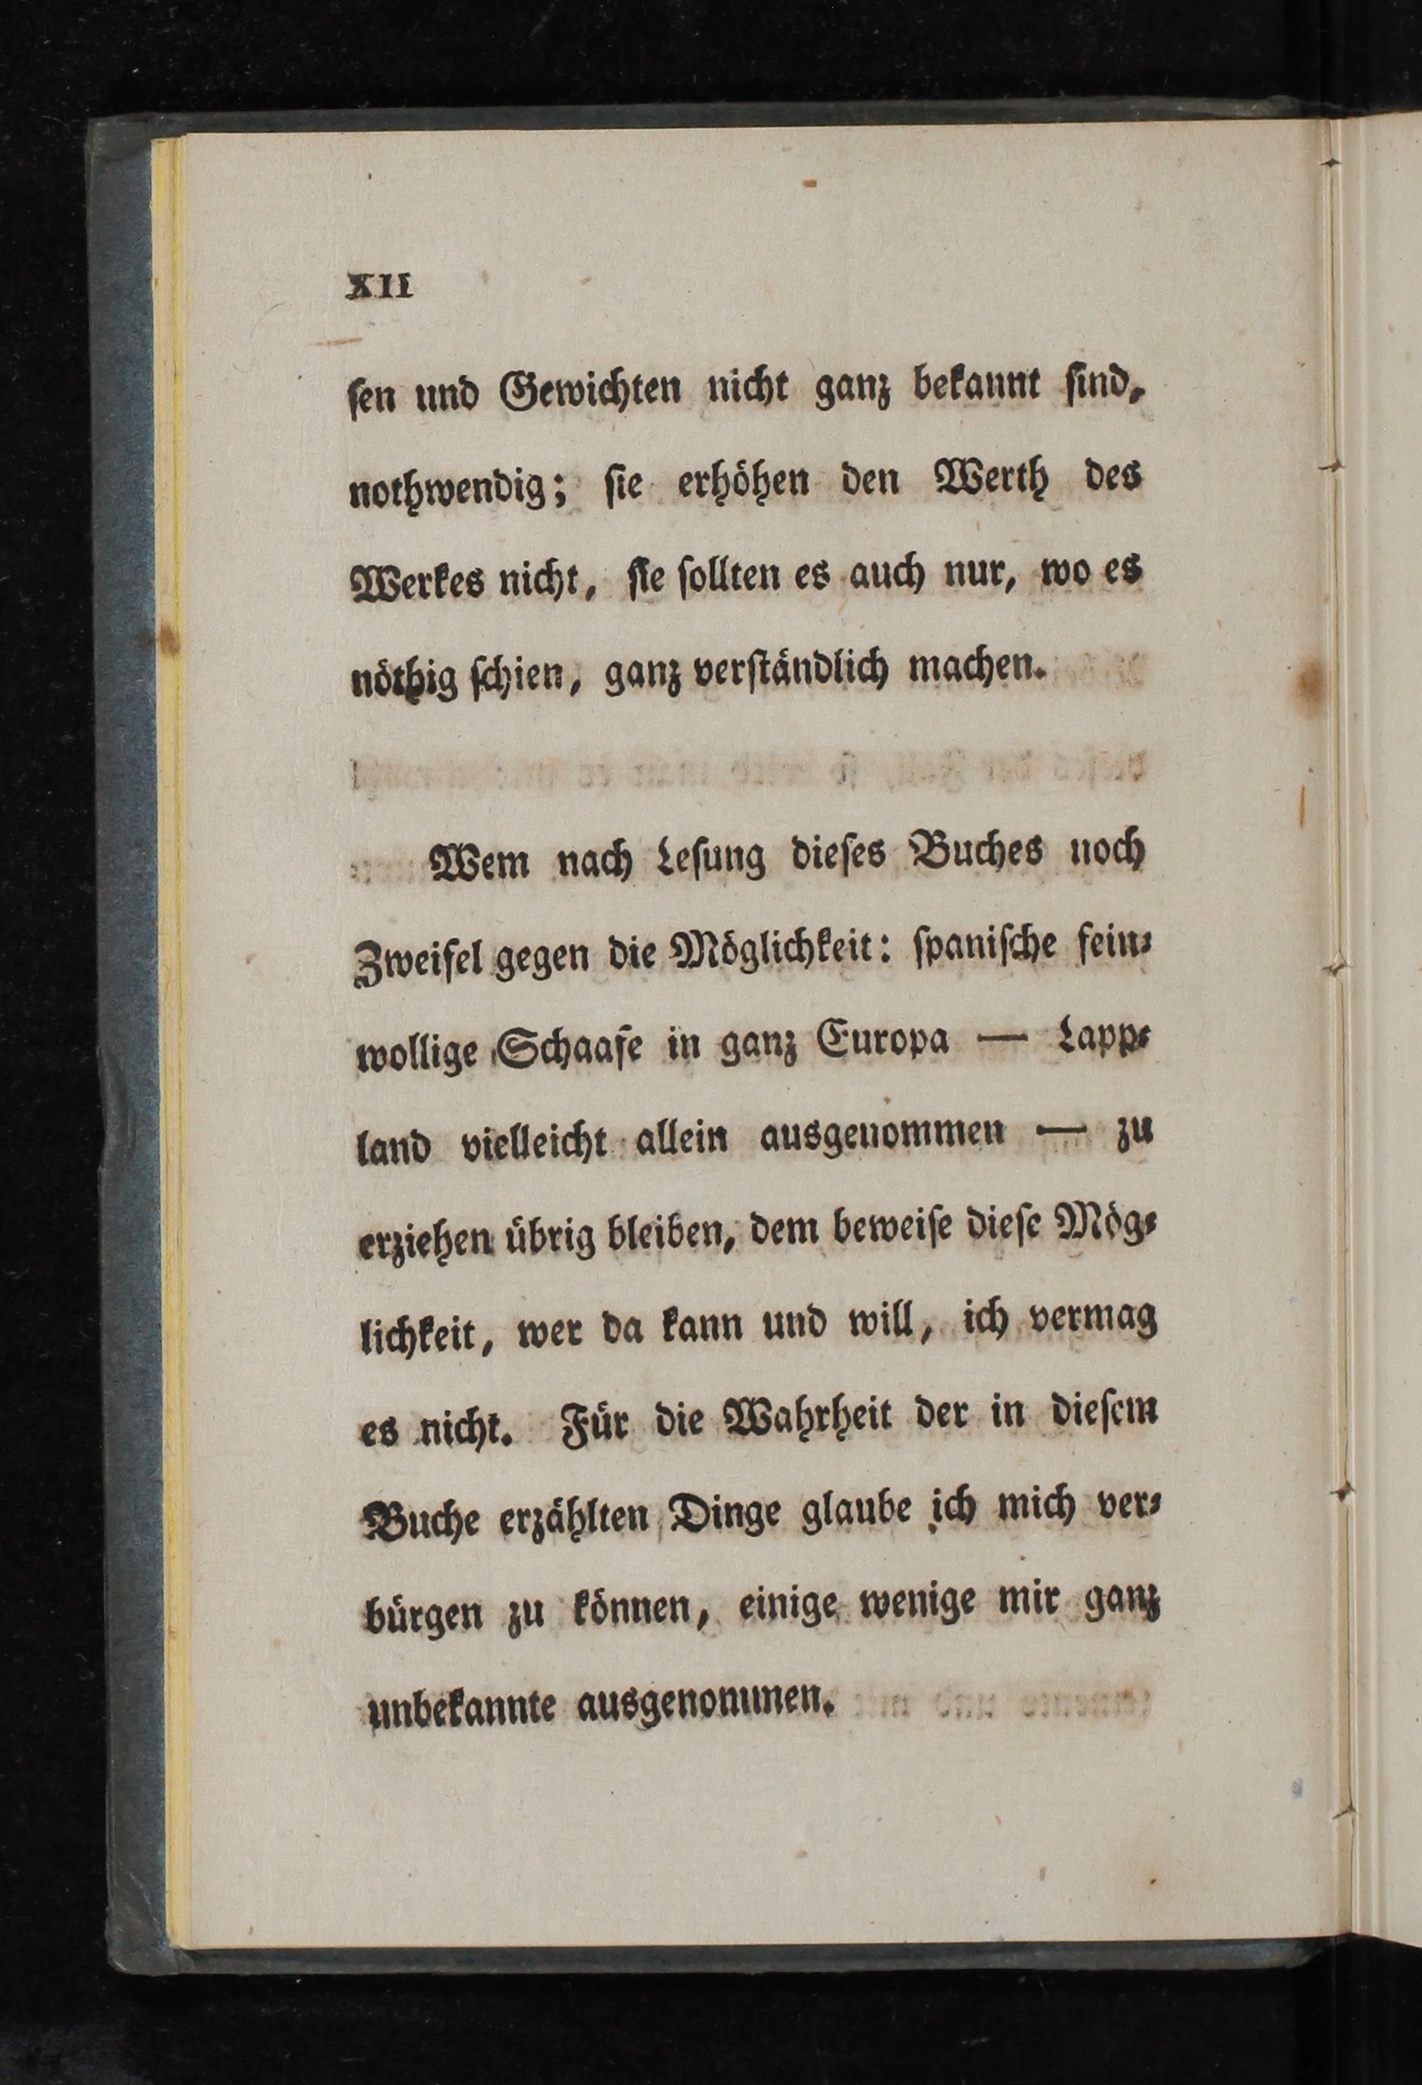 XII
ſen und Gewichten nicht ganz bekannt ſind,
nothwendig; ſie erhöhen den Werth des
Werkes nicht, ſie ſollten es auch nur, wo es
nöthig ſchien, ganz verſtändlich machen.
Wem nach Leſung dieſes Buches noch
Zweifel gegen die Möglichkeit: ſpaniſche fein⸗
wollige Schaafe in ganz Europa — Lapp⸗
land vielleicht allein ausgenommen — zu
erziehen übrig bleiben, dem beweiſe dieſe Mög⸗
lichkeit, wer da kann und will, ich vermag
es nicht. Für die Wahrheit der in dieſem
Buche erzählten Dinge glaube ich mich ver⸗
bürgen zu können, einige wenige mir ganz
unbekannte ausgenommen.